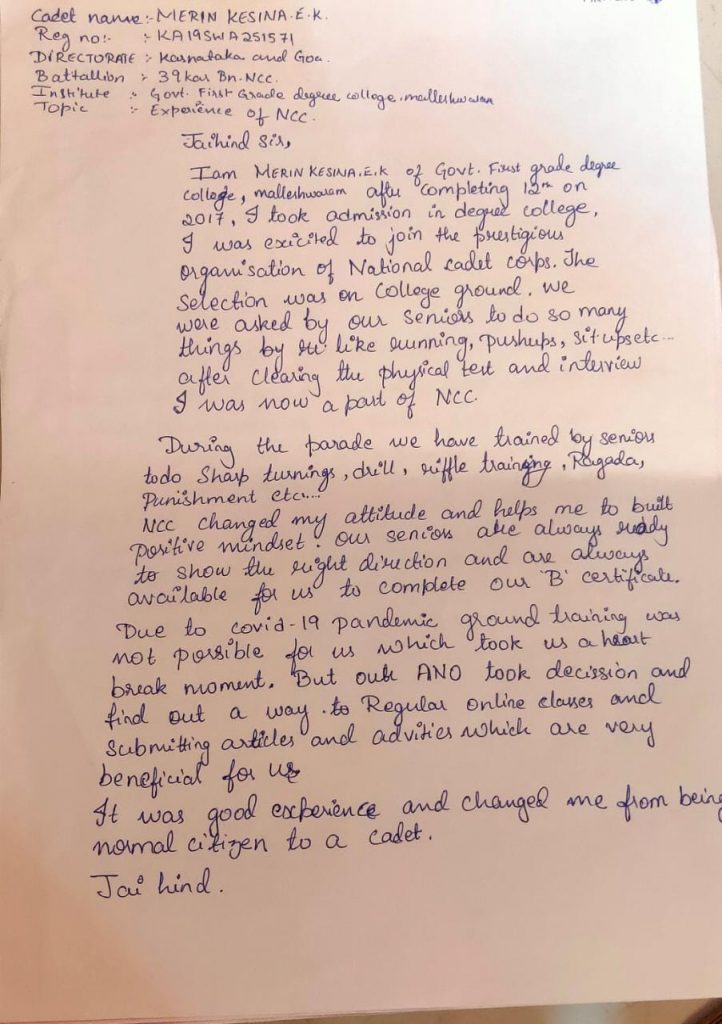 Cadet name:- MERIN KESINA.E.K.
Reg no:- :- KA19SWA251571
DIRECTORATE :- Karnataka and Goa.
Battallion :- 39 kar Bn. NCC.
Institute :- Govt. First Grade degree college, malleshwaram
Topic :- Experience of NCC.
Jaihind Sir,
I am MERIN KESINA.E.K of Govt. First grade degree
college, malleshwaram after completing 12th on
2017, I took admission in degree college,
I was exicited to join the prestigious
organisation of National cadet corps. The
Selection was on College ground. we
were asked by our seniors to do so many
things by like running, pushups, sit-ups etc...
after clearing the physical test and interview
I was now a part of NCC.
During the parade we have trained by seniors
todo Sharp turnings, drill, riffle training, Ragada,
Punishment etc....
NCC changed my attitude and helps me to built
positive mindset. our seniors are always ready
to show the right direction and are always
available for us to complete our 'B' certificate.
Due to covid-19 pandemic ground training was
not possible for us which took us a heart
break moment. But our ANO took decission and
find out a way to Regular online classes and
Submitting articles and advities which are very
beneficial for us
It was good experience and changed me from being
normal citizen to a cadet.
Jai hind.